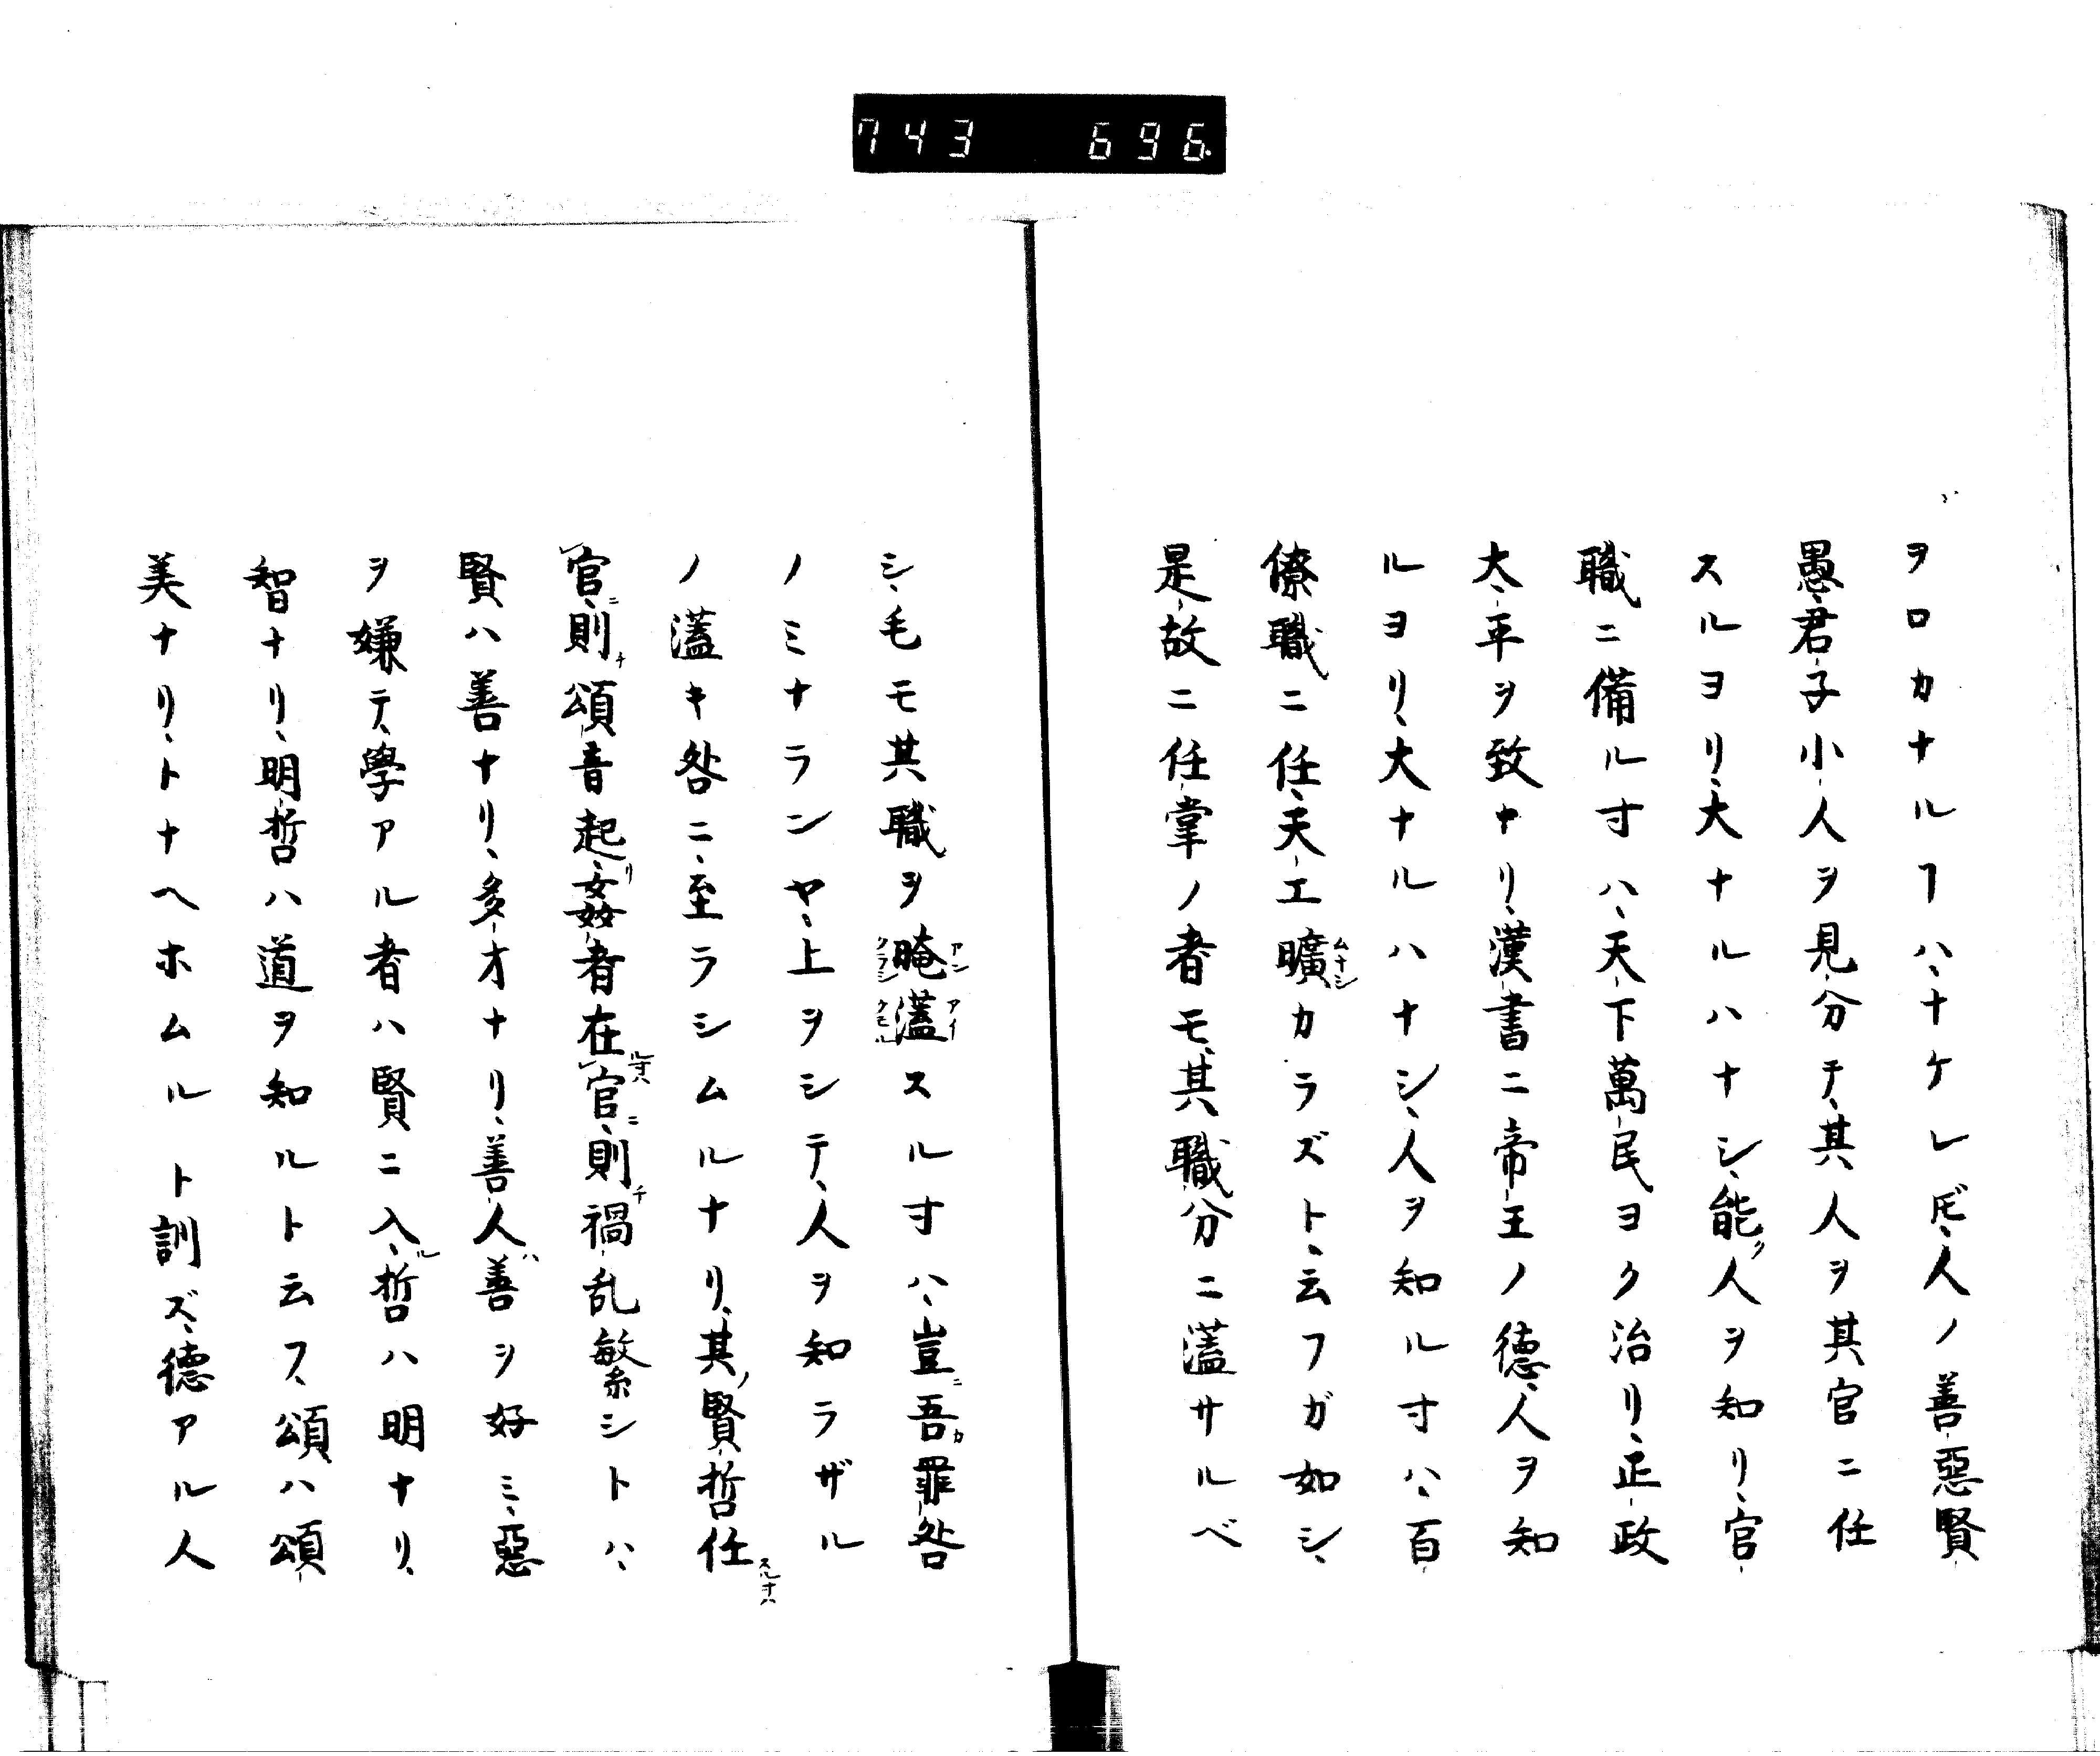 743 696.
ヲロカナルヿハ、ナケレ𪜈、人ノ善惡賢
愚、君子小人ヲ見分テ、其人ヲ其官ニ任
スルヨリ、大ナルハナシ、能ク人ヲ知リ、官
職ニ備ル寸ハ、天下萬民ヨク治リ、正政
大平ヲ致ヤリ、漢書ニ帝王ノ德、人ヲ知
ルヨリ、大ナルハナシ、人ヲ知ル寸ハ、百
僚職ニ任、天工曠ムナシカラズト、云フガ如シ、
是故ニ任掌ノ者モ、其職分ニ藎サルベ
シ、毛モ其職ヲ晻藎アンアイスル寸ハ、豈ニ吾カ罪咎
ノミナランヤ、上ヲシテ、人ヲ知ラザル
ノ藎キ咎ニ、至ラシムルナリ、其ノ賢哲任スル寸ハ
レ官ニ、則チ頌音起リ、姦者在ル寸ハレ官ニ、則チ禍乱繁シトハ、
賢ハ善ナリ、多才ナリ、善人ハ善ヲ好ミ、惡
ヲ嫌テ、學アル者ハ賢ニ入ル、哲ハ明ナリ、
智ナリ、明哲ハ道ヲ知ルト云フ、頌ハ頌
美ナリ、トナヘホムルト訓ズ、德アル人